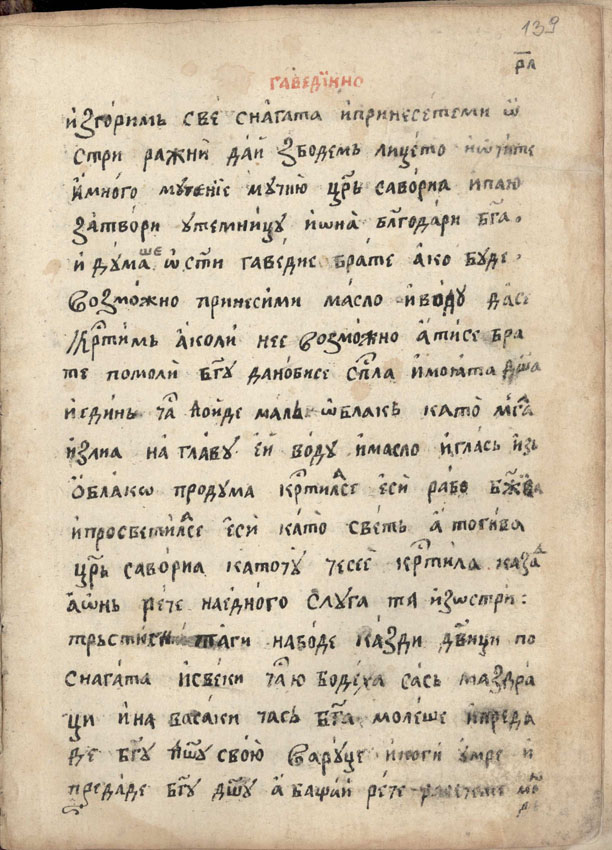 139
рла
гаведїино
изгоримь све снагата и принесетеми ѡ
стри ражни дай збодемь лицето и ѡчите
и много мꙋчение мꙋчию црь саворіа и паю
затвори ꙋ темницꙋ и ѡна блгодари бга.
и дꙋмаше ѡ сти гаведие брате ако бꙋде.
возможно принесими масло и водꙋ дасе
кртимь аколи нее возможно а тисе бра
те помоли бгꙋ данобисе спсла и моята дша
и единь час пойде маль ѡблакь като мгла
излиа на главꙋ ей водꙋ и масло и глась изь
облакѡ продꙋма кртиласе еси рабо бжїа
и просветиласе еси като светь а тогива
црь саворіа като чꙋ чесее кртила каза
а ѡнь рече наедного слꙋга та изѡстри:
трьсти таги набоде кажди двици по
снагата и секи часю бодеха сась маздра
ци и на васаки чась бга молеше и преда
де бгꙋ дшꙋ свою в рꙋце и поги ꙋмре и
предаде бгꙋ дшꙋ а бащай рече